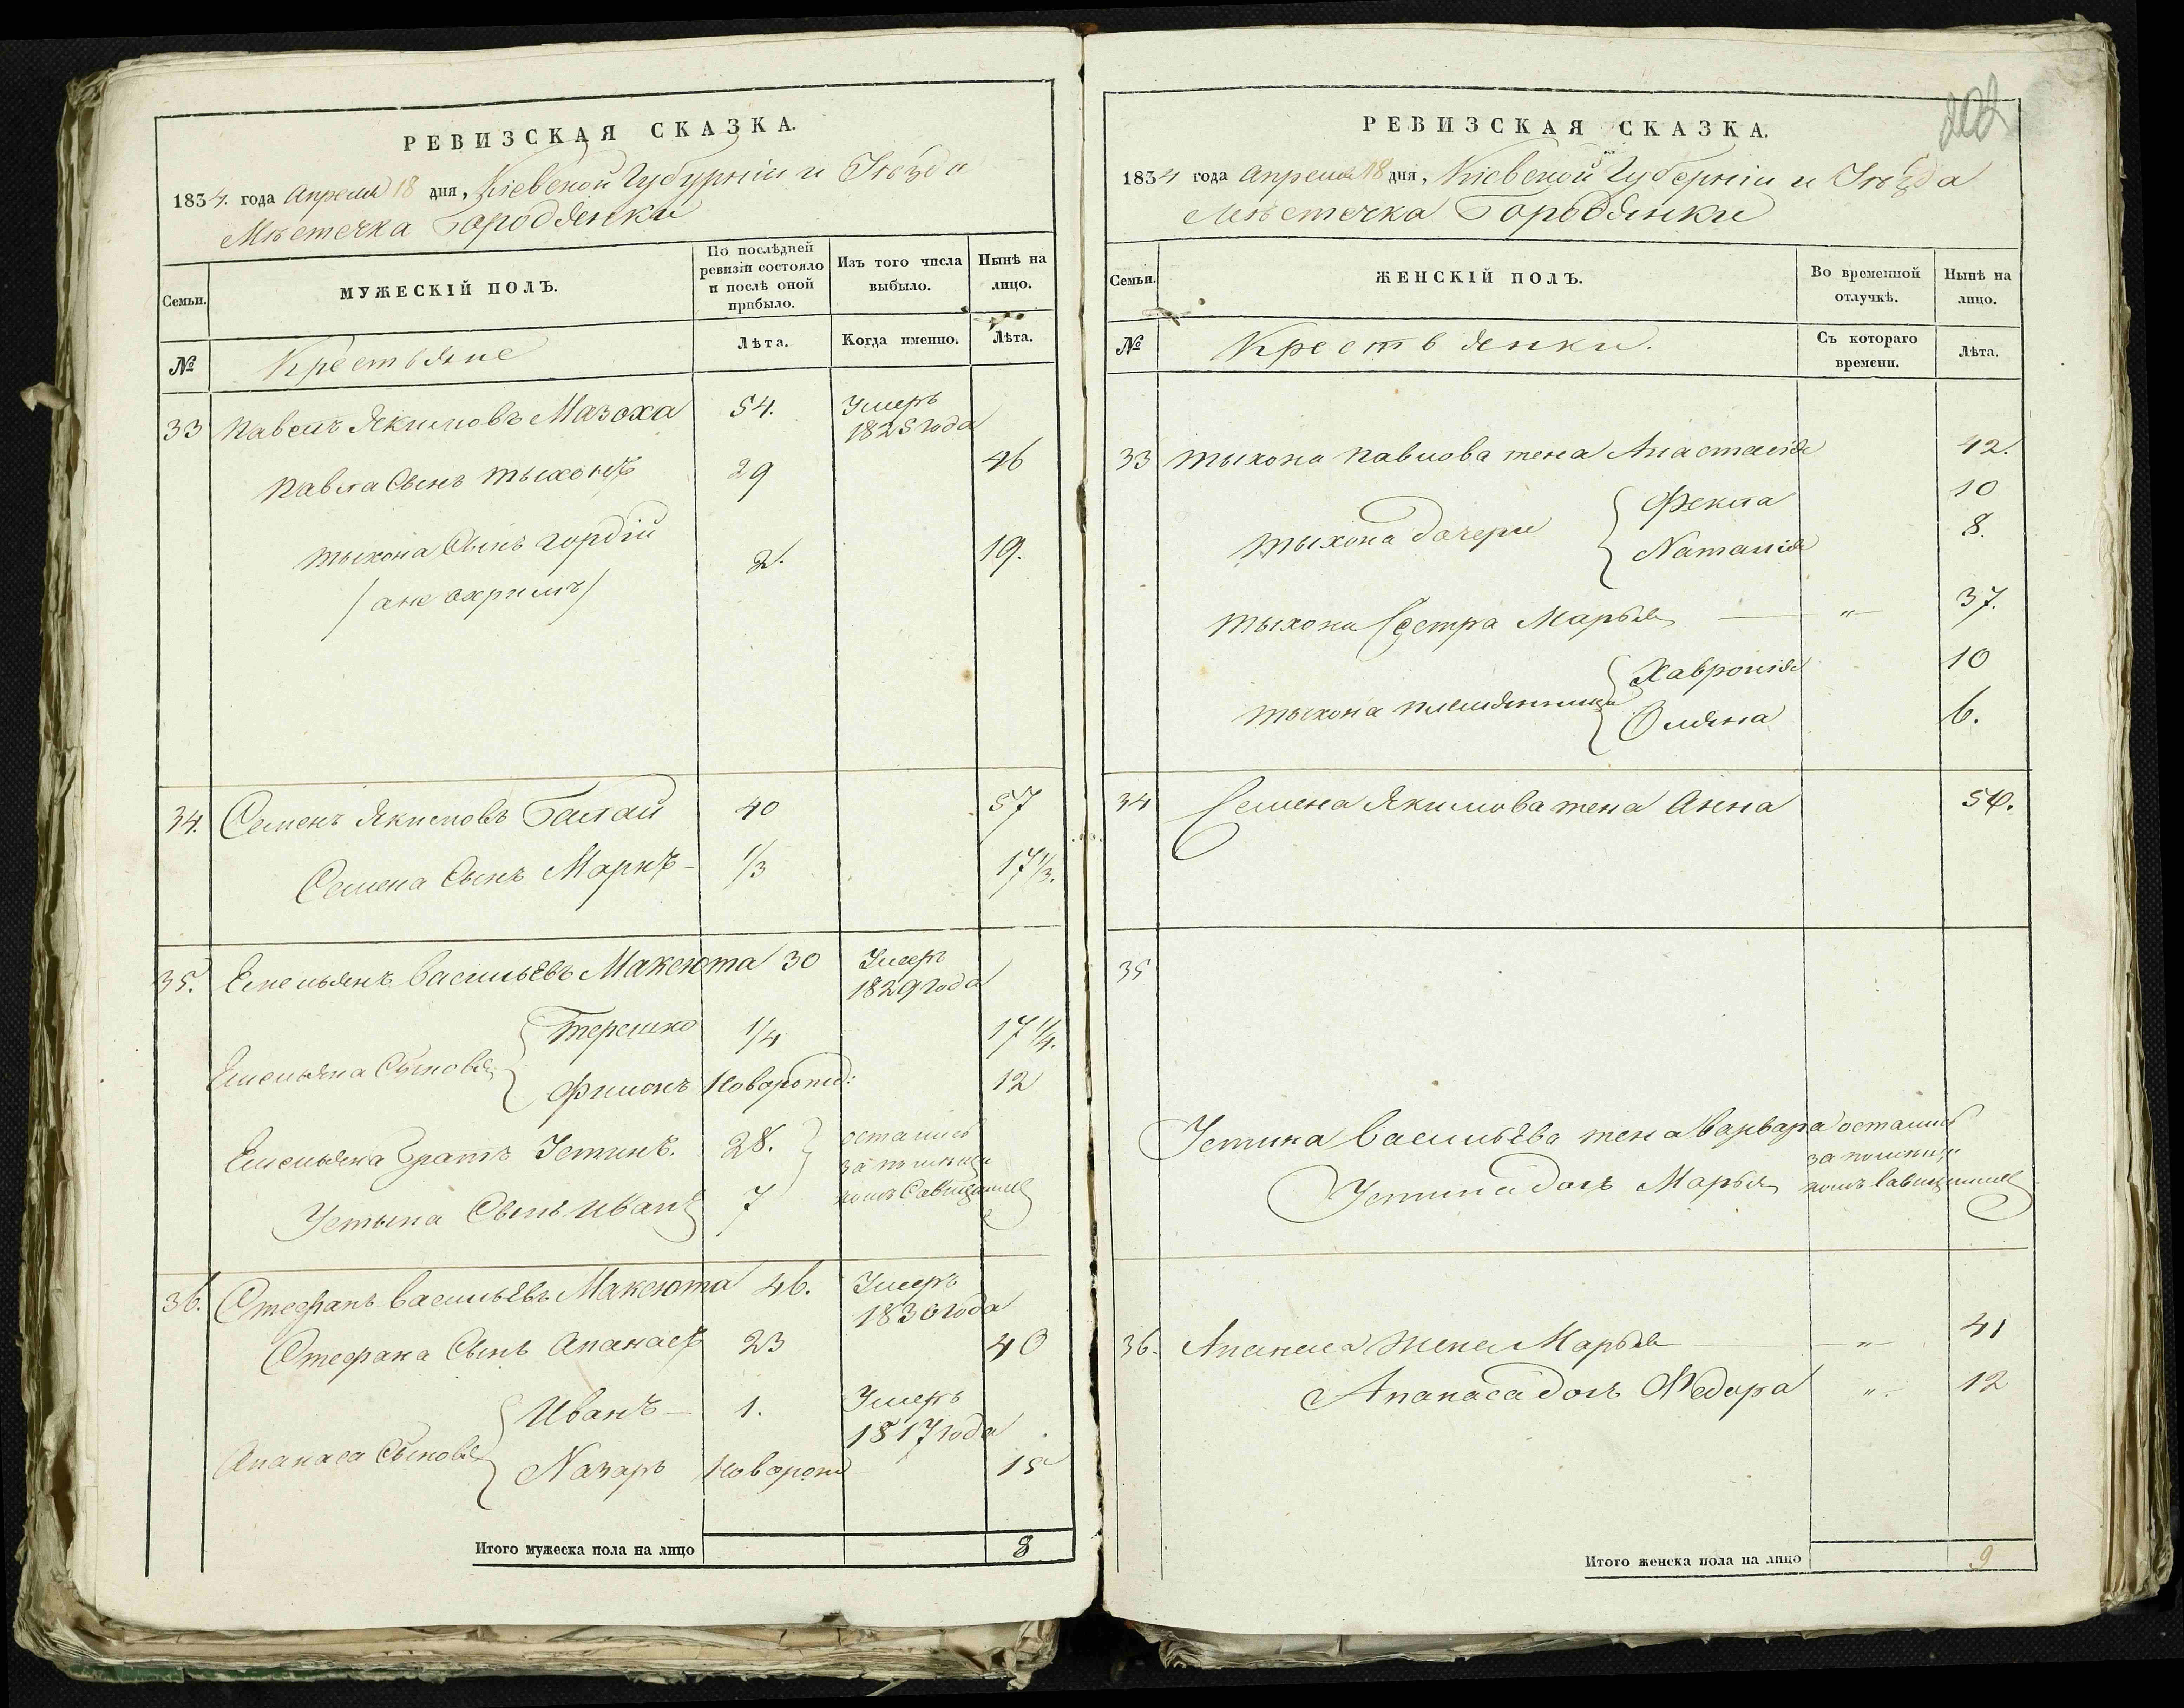 РЕВИЗСКАЯ СКАЗКА.
1834. года Апреля 18 дня, Кіевской Губерніи и Уезда
Мѣстечка Бородянки
Семьи.
МУЖЕСКІЙ ПОЛЪ.
По послѣдней ревизіи состояло и послѣ оной прибыло.
Изъ того числа выбыло.
Нынѣ на лицо.
№
Крестьяне
Лѣта.
Когда именно.
Лѣта.
33 Павелъ Якимовъ Мазоха 54. Умеръ 1825 года
Павла Сынъ Тыхонъ 29 46
Тыхона Сынъ Гордій 2. 19.
/ане Охримъ/
34. Семенъ Якимовъ Балай 40 57
Семена Сынъ Маркъ - 1/3 17 1/3.
35. Емельянъ Васильевъ Максюта 30 Умеръ 1829 года
Емельяна Сыновья { Терешко 1/4 17 1/4.
Филонъ Новорожд: 12
Емельяна Братъ Устинъ. 28. } остались
за помѣщи
Устына Сынъ Иванъ 7
комъ
36. Стефанъ Васильевъ Максюта 46. Умеръ 1830 года
Стефана Сынъ Апанасъ 23 40
Апанаса Сыновья { Иванъ - 1. Умеръ 1817 года
Назаръ Неворожд 15
Итого мужеска пола на лицо 8
202
РЕВИЗСКАЯ СКАЗКА.
1834 года Апреля 18 дня, Кіевской Губерніи и Уѣзда
Мѣстечка Бородянки
Семьи.
ЖЕНСКІЙ ПОЛЪ.
Во временной отлучкѣ.
Нынѣ на лицо.
№
Крестьянки.
Съ котораго времени.
Лѣта.
33 Тыхона Павлова жена Анастасія 42.
Тыхона дочери { Фекла 10
Наталія 8.
Тыхона Сестра Марья — " — 37.
Тыхона племянницы { Хавронія 10
Оляна 6.
34 Семена Якимова жена Анна 50.
35
Устина Васильева жена Варвара остались
за помѣщи
Устина дочь Марья комъ
36. Апанаса жена Марья — " — 41
Апанаса дочь Федора " - 12
Итого женска пола на лицо 9